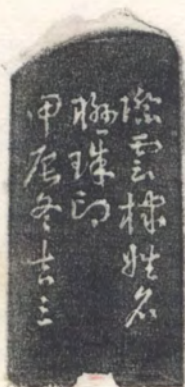 隂雲棣姓名
聯珠印
甲辰冬吉三